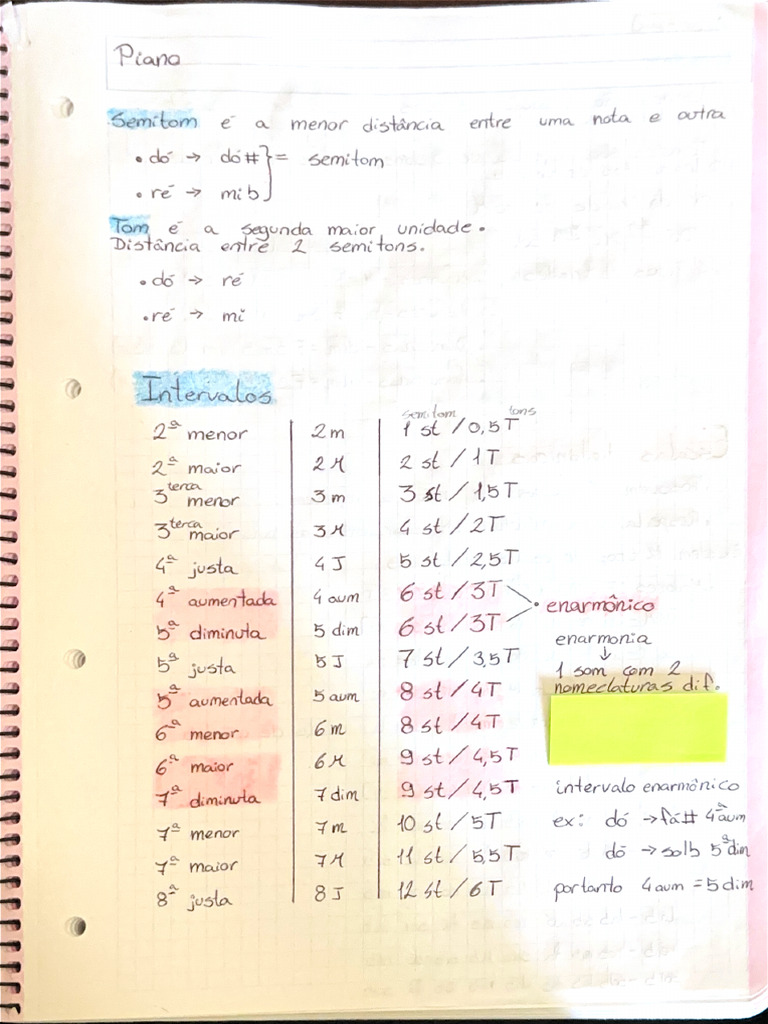 Piano
Semitom é a menor distância entre uma nota e outra
• dó → dó# } = semitom
• ré → mib
Tom é a segunda maior unidade.
Distância entre 2 semitons.
• dó → ré
• ré → mi
Intervalos
semitom tons
2ª menor 2m 1 st / 0,5 T
2ª maior 2M 2 st / 1T
3 terca menor 3m 3 st / 1,5 T
3 terca maior 3M 4 st / 2T
4ª justa 4J 5 st / 2,5T
4ª aumentada 4 aum 6 st / 3T
• enarmônico
5ª diminuta 5 dim 6 st / 3T
enarmonia
↓
5ª justa 5J 7 st / 3,5T
1 som com 2
nomeclaturas dif.
5ª aumentada 5 aum 8 st / 4T
6ª menor 6m 8 st / 4T
6ª maior 6M 9 st / 4,5T
7ª diminuta 7 dim 9 st / 4,5T
intervalo enarmônico
7ª menor 7m 10 st / 5T
ex: dó → fá# 4ª aum
7ª maior 7M 11 st / 5,5 T
dó → solb 5ª dim
8ª justa 8J 12 st / 6 T
portanto 4 aum = 5 dim